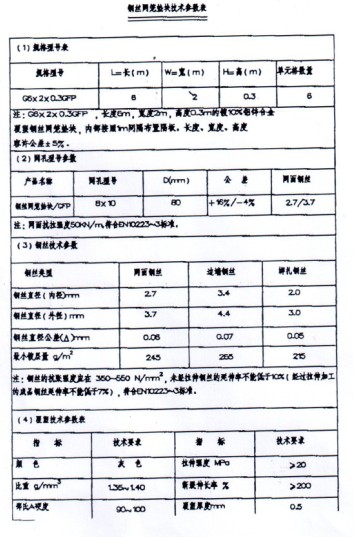 钢丝网笼垫块技术参数表
(1)规格型号表
规格型号 L=长(m) W=宽(m) H=高(m) 单元格数量
G6x2x0.3GFP 6 2 0.3 6
注:G6x2x0.3GFP,长度6m,宽度2m,高度0.3m的镀10%铝锌合金
覆塑钢丝网笼垫块,内部按照1m间隔布置隔板。长度、宽度、高度
容许公差±5%。
(2)网孔型号参数
产品名称 网孔型号 D(mm) 公 差 网面钢丝
钢丝网笼垫块/GFP 8x10 80 +16%/-4% 2.7/3.7
注:网面抗拉强度50KN/m,符合EN10223-3标准。
(3)钢丝技术参数
钢丝类型 网面钢丝 边端钢丝 绑扎钢丝
钢丝直径(内径)mm 2.7 3.4 2.0
钢丝直径(外径)mm 3.7 4.4 3.0
钢丝直径公差(Δ)mm 0.06 0.07 0.05
最小镀层量 g/m² 245 265 215
注:钢丝的抗张强度应在 350-550 N/mm²,未经拉伸钢丝的延伸率不能低于10%(经过拉伸加工
的成品钢丝延伸率不能低于7%),符合EN10223-3标准。
(4)覆塑技术参数表
指 标 技术要求 指 标 技术要求
颜 色 灰 色 拉伸强度 MPa ≥20
比重 g/mm³ 1.35~1.40 断裂伸长率 % ≥200
邵氏A硬度 90~100 覆塑厚度mm 0.5